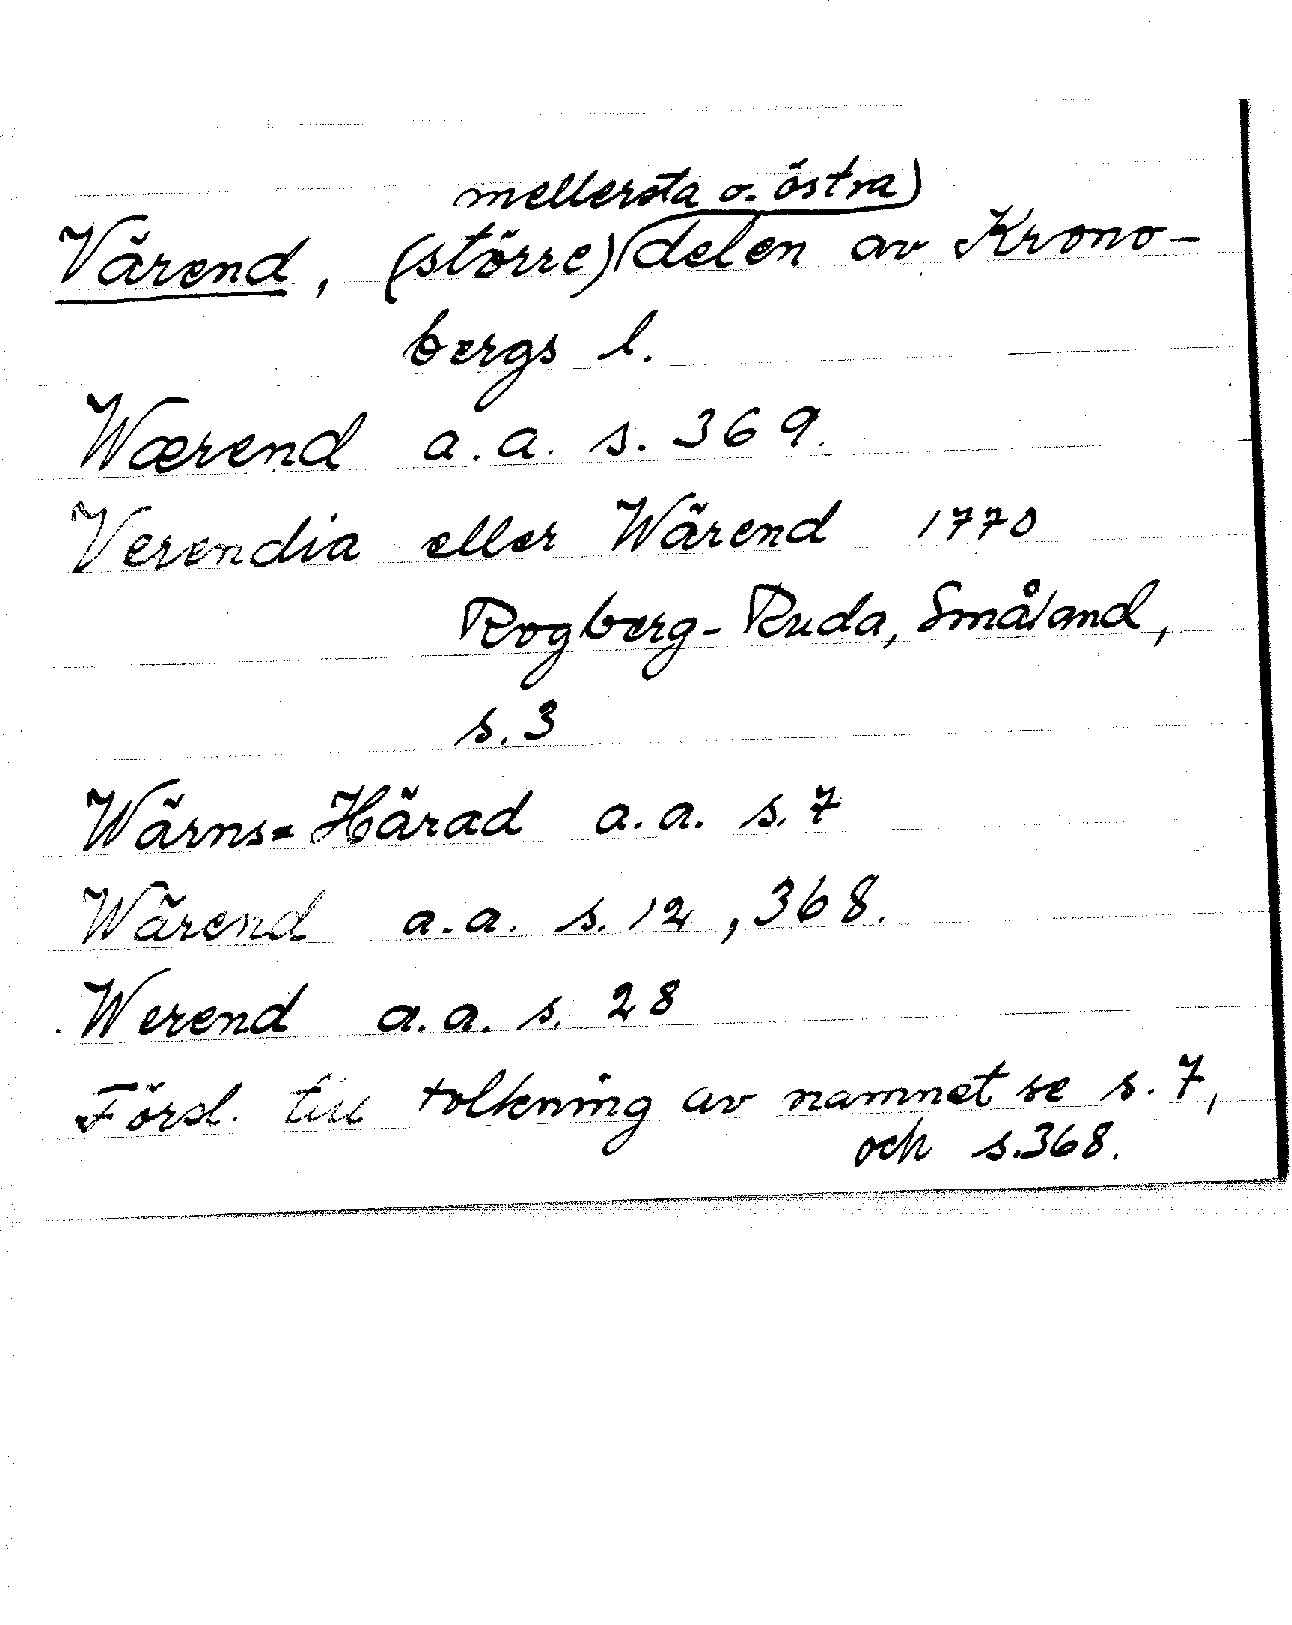 mellersta o. östra)
Värend, (större) delen av Krono-
bergs l.
Wærend a.a. s. 369.
Verendia eller Wärend 1770
Rogberg-Ruda, Småland,
s. 3
Wärns=Härad a.a. s. 7
Wärend a.a. s. 12, 368.
Werend a.a. s. 28
Försl. till tolkning av namnet se s. 7,
och s. 368.